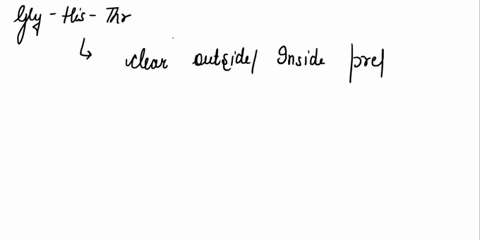 Gly - His - Thr
↳ clear outside/ Inside pref